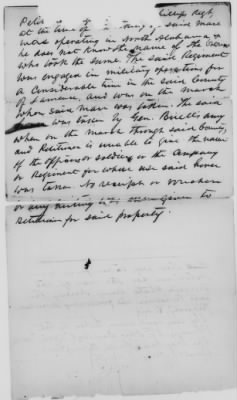 Peter Gillips Regt,
at the time of said mare
was operating in North Alabama &
he does not know the name of the Person
who took the same. The said Regiment
was engaged in military operations for
a Considerable time in the said County
of and was on the march
when said mare was taken. The said
was taken by Gen. Buells army
when on the march through said County,
and Petitioner is unable to give the name
of the officers or soldiers or the Company
or Regiment for whose use said horse
was taken. No receipt or voucher
or any writing was ever given to
Petitioner for said property.